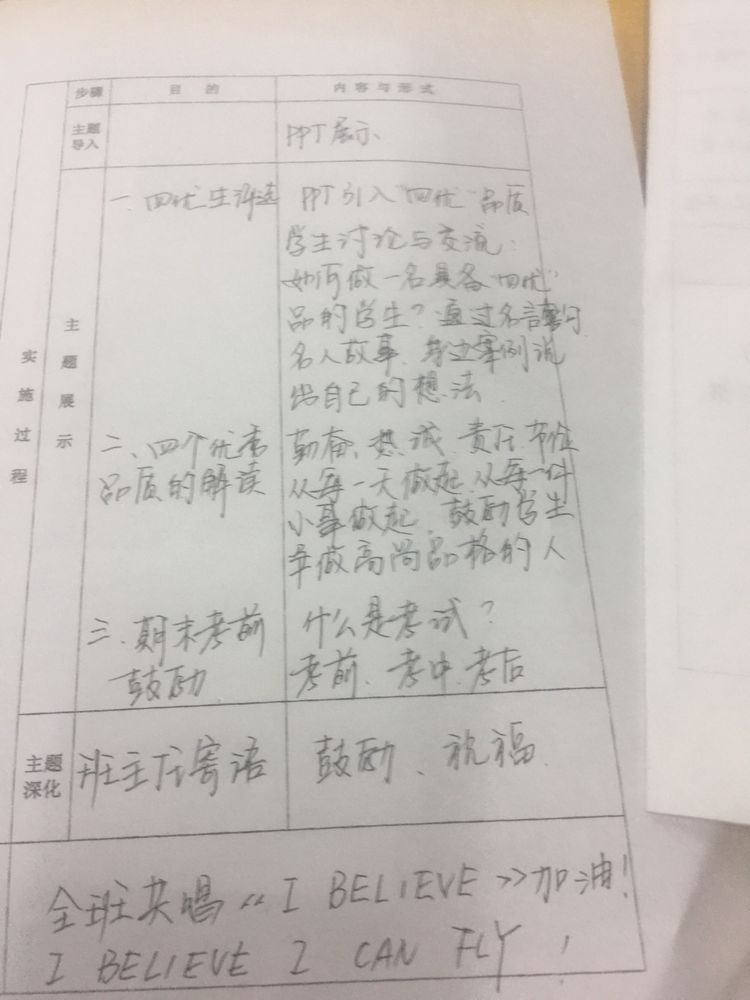 步骤 目的 内容与形式
主题导入 PPT展示
实施过程
主题展示
一、四优生评选 PPT引入"四优"品质
学生讨论与交流:
如何做一名具备"四优"
品的学生?通过名言
名人故事、身边案例说
出自己的想法
二、四个优秀 勤奋、热诚、责任
品质的解读 从每一天做起、从每一件
小事做起、鼓励学生
争做高尚品格的人
三、期末考前 什么是考试?
鼓励 考前、考中、考后
主题深化 班主任寄语 鼓励、祝福
全班共唱《I BELIEVE》加油!
I BELIEVE I CAN FLY!